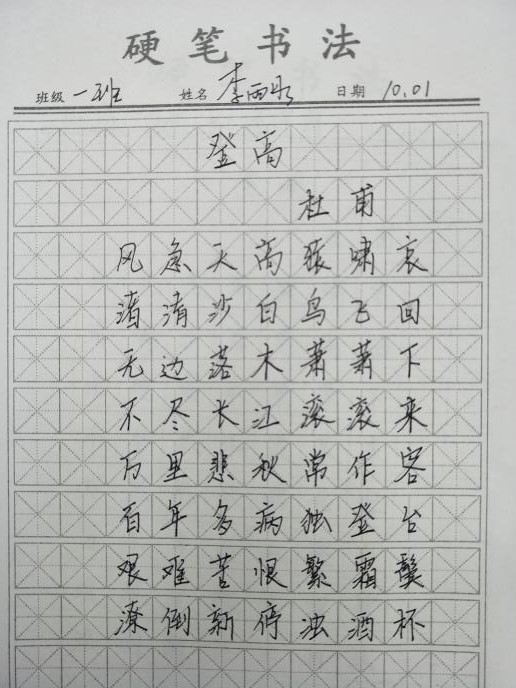 硬笔书法
班级 一班 姓名 李雨 日期 10.01
登高
杜甫
风急天高猿啸哀
渚清沙白鸟飞回
无边落木萧萧下
不尽长江滚滚来
万里悲秋常作客
百年多病独登台
艰难苦恨繁霜鬓
潦倒新停浊酒杯